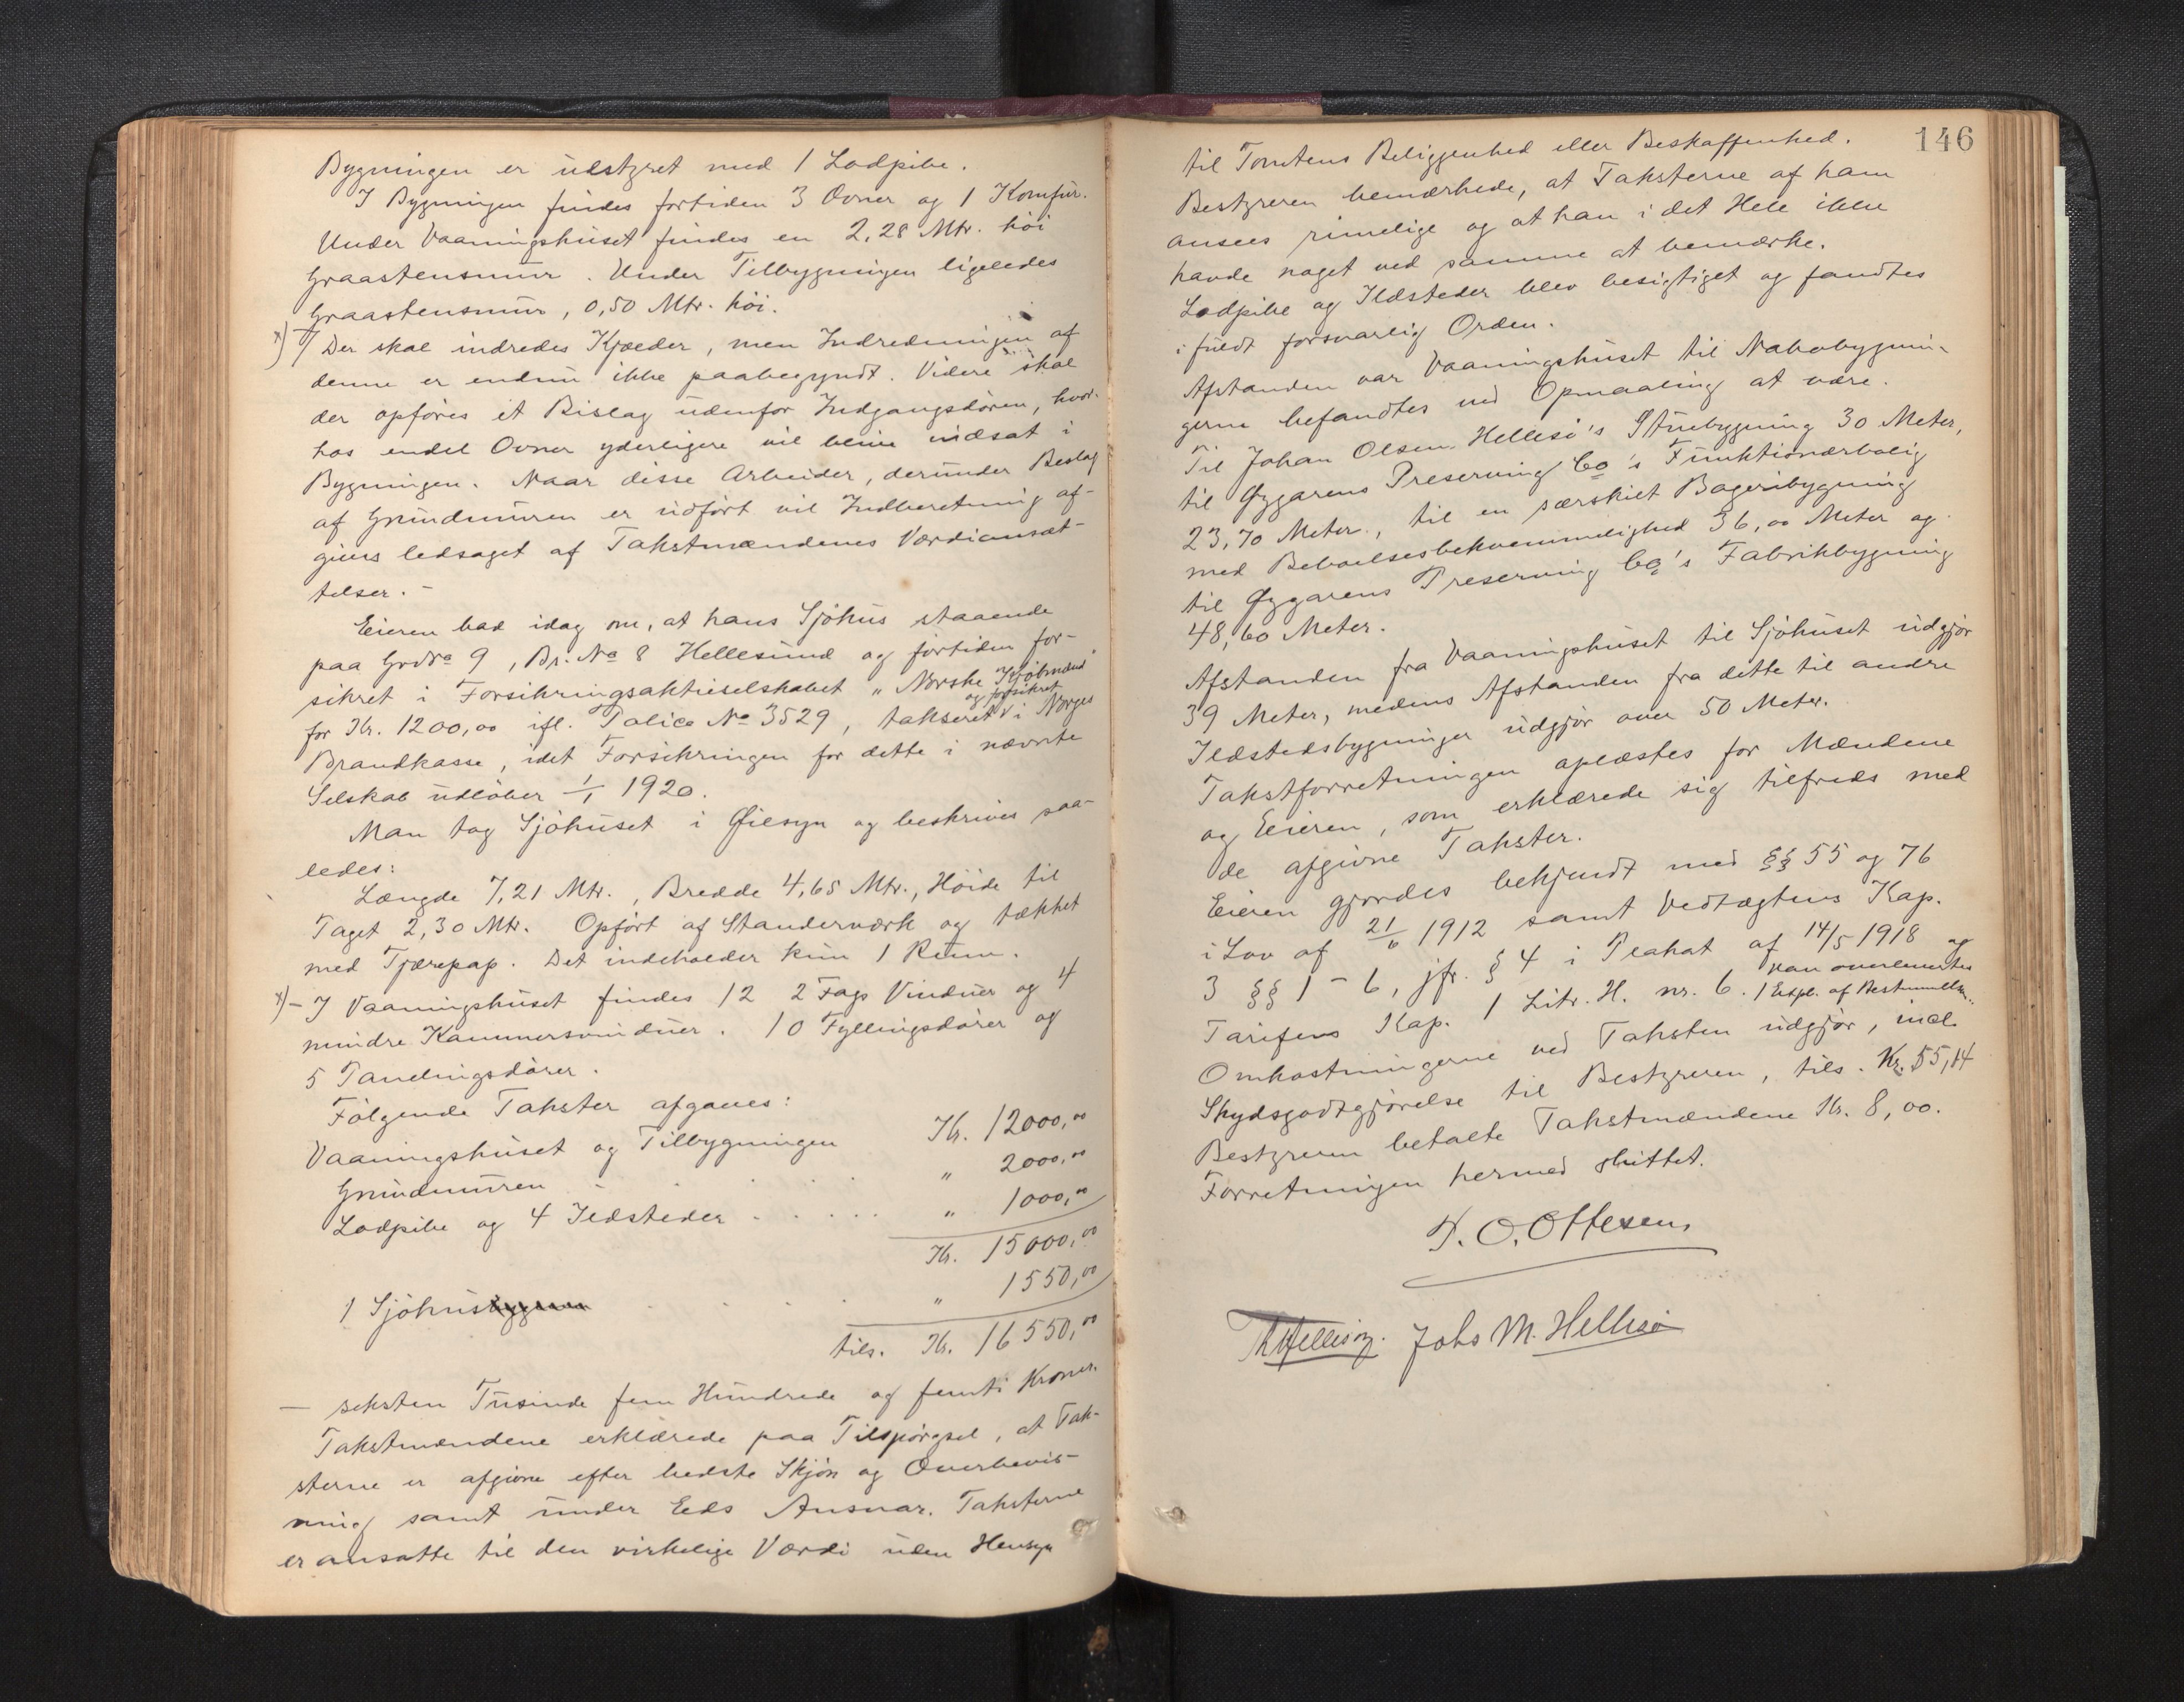 Bygningen er udstyret med 1 Lodpibe.
I Bygningen findes fortiden 3 Ovner og 1 Komfur.
Under Vaaningshuset findes en 2,28 Mtr. høi
Graastensmur. Under Tilbygningen ligeledes
Graastensmur, 0,50 Mtr. høi.
x) Der skal indredes Kjælder, men Indredningen af
denne er endnu ikke paabegyndt. Videre skal
der opføres et Bislag udenfor Indgangsdøren, hvor-
hos endel Ovner yderligere vil blive indsat i
Bygningen. Naar disse Arbeider, derunder Beslag
af Grundmuren er udført vil Indberetning af-
gives ledsaget af Takstmændenes Værdiansæt-
telser. –
Eieren bad idag om, at hans Sjøhus staaende
paa Grdno 9, Br. No 8 Hellesund og fortiden for-
sikret i Forsikringsaktieselskabet „Norske Kjøbmænd"
for Kr. 1200,00 ifl. Police No 3529, takseret og forsikret i Norges
Brandkasse, idet Forsikringen for dette i nævnte
Selskab udløber 1/1 1920.
Man tog Sjøhuset i Øiesyn og beskrives saa-
ledes:
Længde 7,21 Mtr., Bredde 4,65 Mtr., Høide til
Taget 2,30 Mtr. Opført af Standerværk og tækket
med Tjærepap. Det indeholder kun 1 Rum.
x) – I Vaaningshuset findes 12 2 Fags Vinduer og 4
mindre Kammersvinduer. 10 Fyllingsdører og
5 Panelingsdører.
Følgende Takster afgaves:
Vaaningshuset og Tilbygningen Kr. 12000,00
Grundmuren „ 2000,00
Lodpibe og 4 Ildsteder . . . . . „ 1000,00
Kr. 15000,00
1 Sjøhus . . . . „ 1550,00
tils. Kr. 16550,00
– seksten Tusinde fem Hundrede og femti Kroner.
Takstmændene erklærede paa Tilspørgsel, at Tak-
sterne er afgivne efter bedste Skjøn og Overbevis-
ning samt under Eds Ansvar. Taksterne
er ansatte til den virkelige Værdi uden Hensyn
146
til Tomtens Beliggenhed eller Beskaffenhed.
Bestyreren bemærkede, at Taksterne af ham
ansees rimelige og at han i det Hele ikke
havde noget ved samme at bemærke.
Lodpibe og Ildsteder blev besigtiget og fandtes
i fuldt forsvarlig Orden.
Afstanden var Vaaningshuset til Nabobygnin-
gerne befandtes ved Opmaaling at være.
Til Johan Olsen Hellisø's Stuebygning 30 Meter,
til Øygarens Preserving Co's Funktionærbolig
23,70 Meter., til en særskilt Bageribygning
med Beboelsesbekvemmelighed 36,00 Meter og
til Øygarens Preserving Co's Fabrikbygning
48,60 Meter.
Afstanden fra Vaaningshuset til Sjøhuset udgjør
39 Meter, medens Afstanden fra dette til andre
Ildstedsbygninger udgjør over 50 Meter.
Takstforretningen oplæstes for Mændene
og Eieren, som erklærede sig tilfreds med
de afgivne Takster.
Eieren gjordes bekjendt med §§ 55 og 76
i Lov af 21/6 1912 samt Vedtægtens Kap.
3 §§ 1 – 6, jfr. § 4 i Plakat af 14/5 1918 og
Tarifens Kap. 1 Litr. H. nr. 6. Man overlevertes 1 Expl. af Bestemmelsn.
Omkostningerne ved Taksten udgjør, incl.
Skydsgodtgjørelse til Bestyreren, tils. Kr. 55,14
Bestyreren betalte Takstmændene Kr. 8,00.
Forretningen hermed sluttet.
P. O. Ottesen,
Johs M. Hellisø